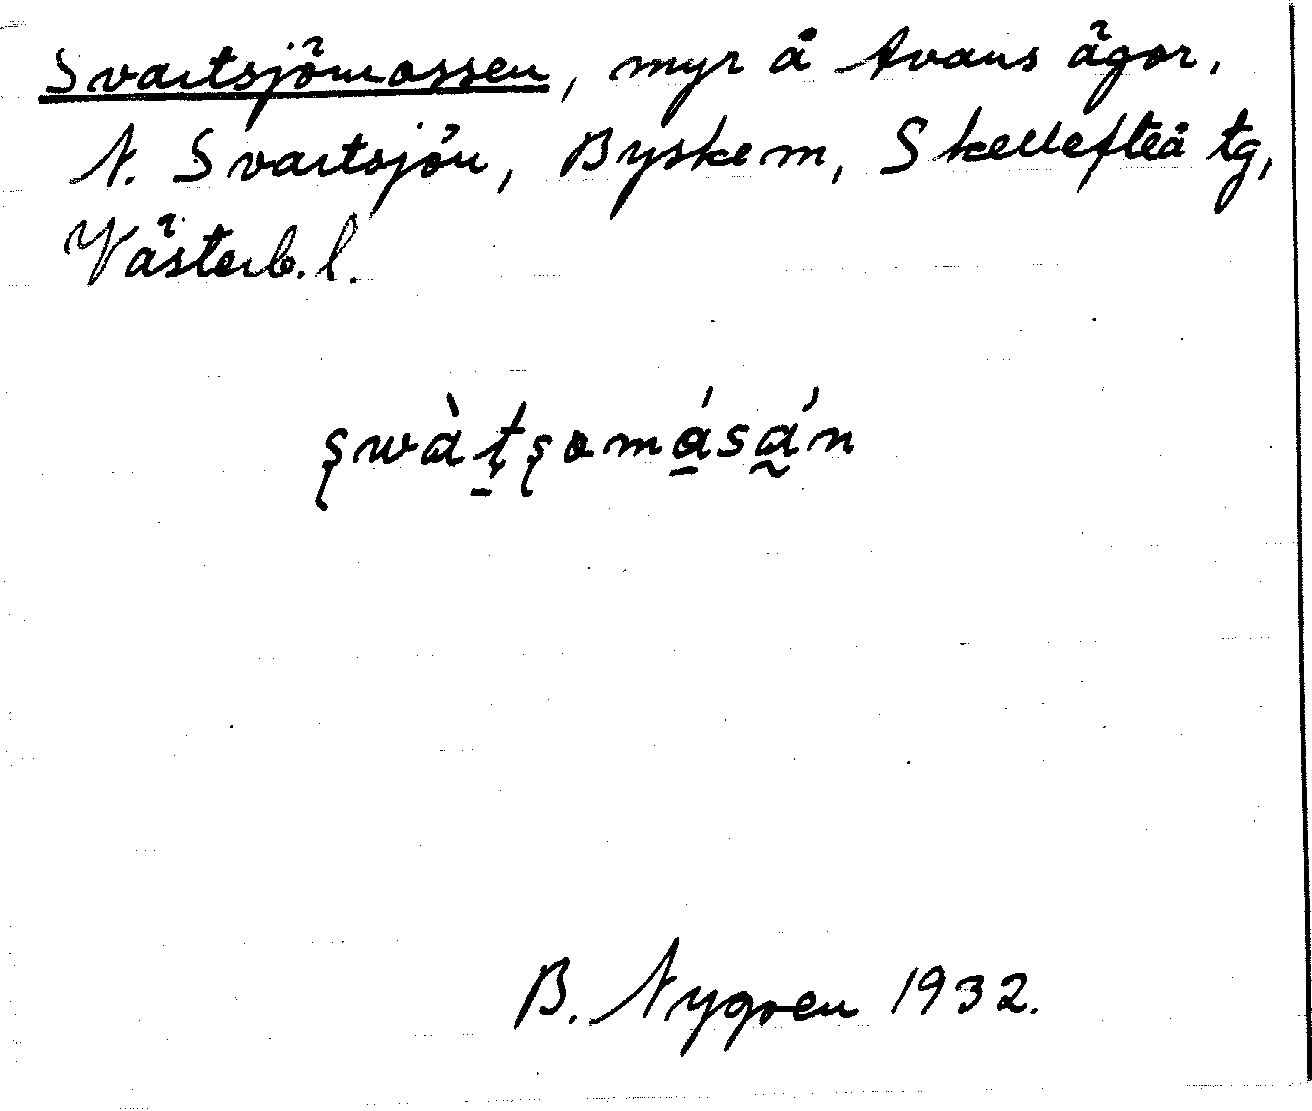 Svartsjömossen, myr å Avans ägor,
N. Svartsjön, Byskem, Skellefteå tg,
Västerb. l.
ʂwàṯʂomá̱sá̰n
B. Nygren 1932.